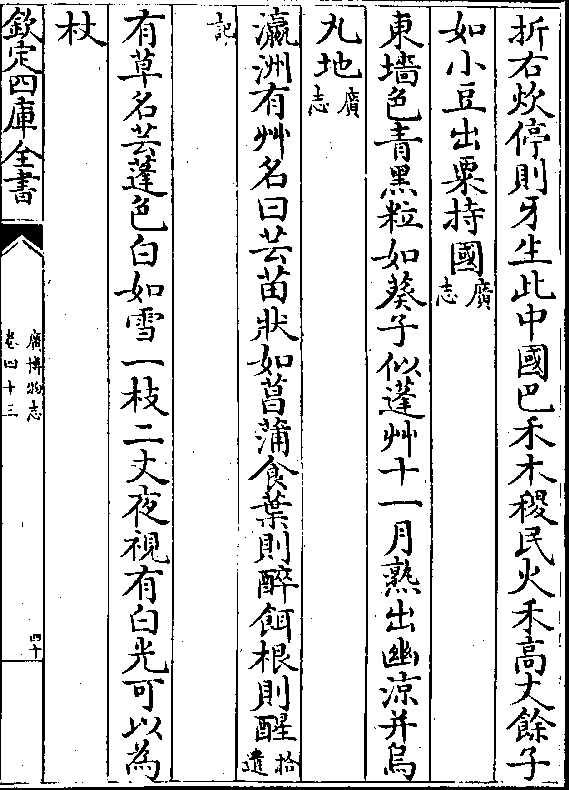 折右炊停則牙生此中國巴禾木稷民火禾高丈餘子
如小豆出粟持國廣志
東墻色青黑粒如葵子似蓬艸十一月熟出幽涼并烏
丸地廣志
瀛洲有艸名曰芸苗狀如菖蒲食葉則醉餌根則醒拾遺
記
有草名芸蓬色白如雪一枝二丈夜視有白光可以為
杖
欽定四庫全書
廣博物志
卷四十三
四十